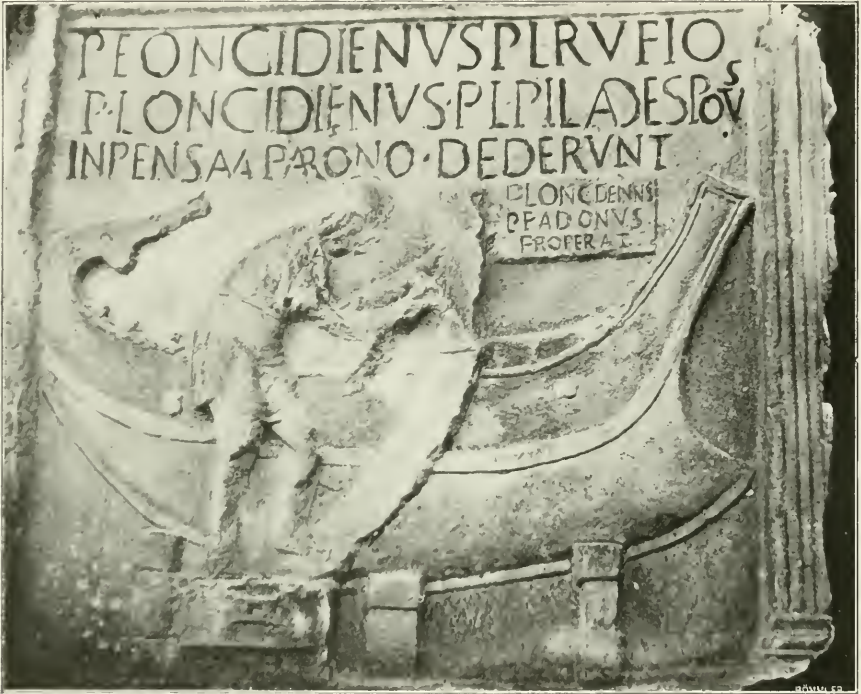 P LONGIDIENVS P L RVFIO
P·LONGIDIENVS·P·L·PILADESPOTVS
INPENSAM PATRONO·DEDERVNT
P LONGIDIENVS
P F AD ONVS
PROPERAT